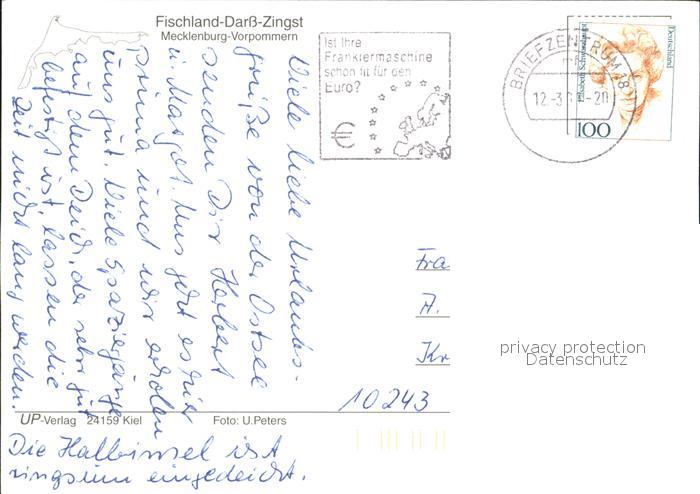 Fischland-Darß-Zingst
Mecklenburg-Vorpommern
Viele liebe Urlaubs-
grüße von der Ostsee
senden Dir Herbert
u. Margot. Uns geht es hier
prima und wir erholen
uns gut. Viele Spaziergänge
auf dem Deich, der sehr gut
befestigt ist, lassen die
Zeit nicht lang werden.
UP-Verlag 24159 Kiel Foto: U.Peters
Die Halbinsel ist
ringsum eingedeicht.
Ist Ihre
Frankiermaschine
schon fit für den
Euro?
€
BRIEFZENTRUM 18
12-3 -20
Deutschland
Elisabeth Schwarzhaupt
100
Fra
A.
Kr
10243
privacy protection
Datenschutz